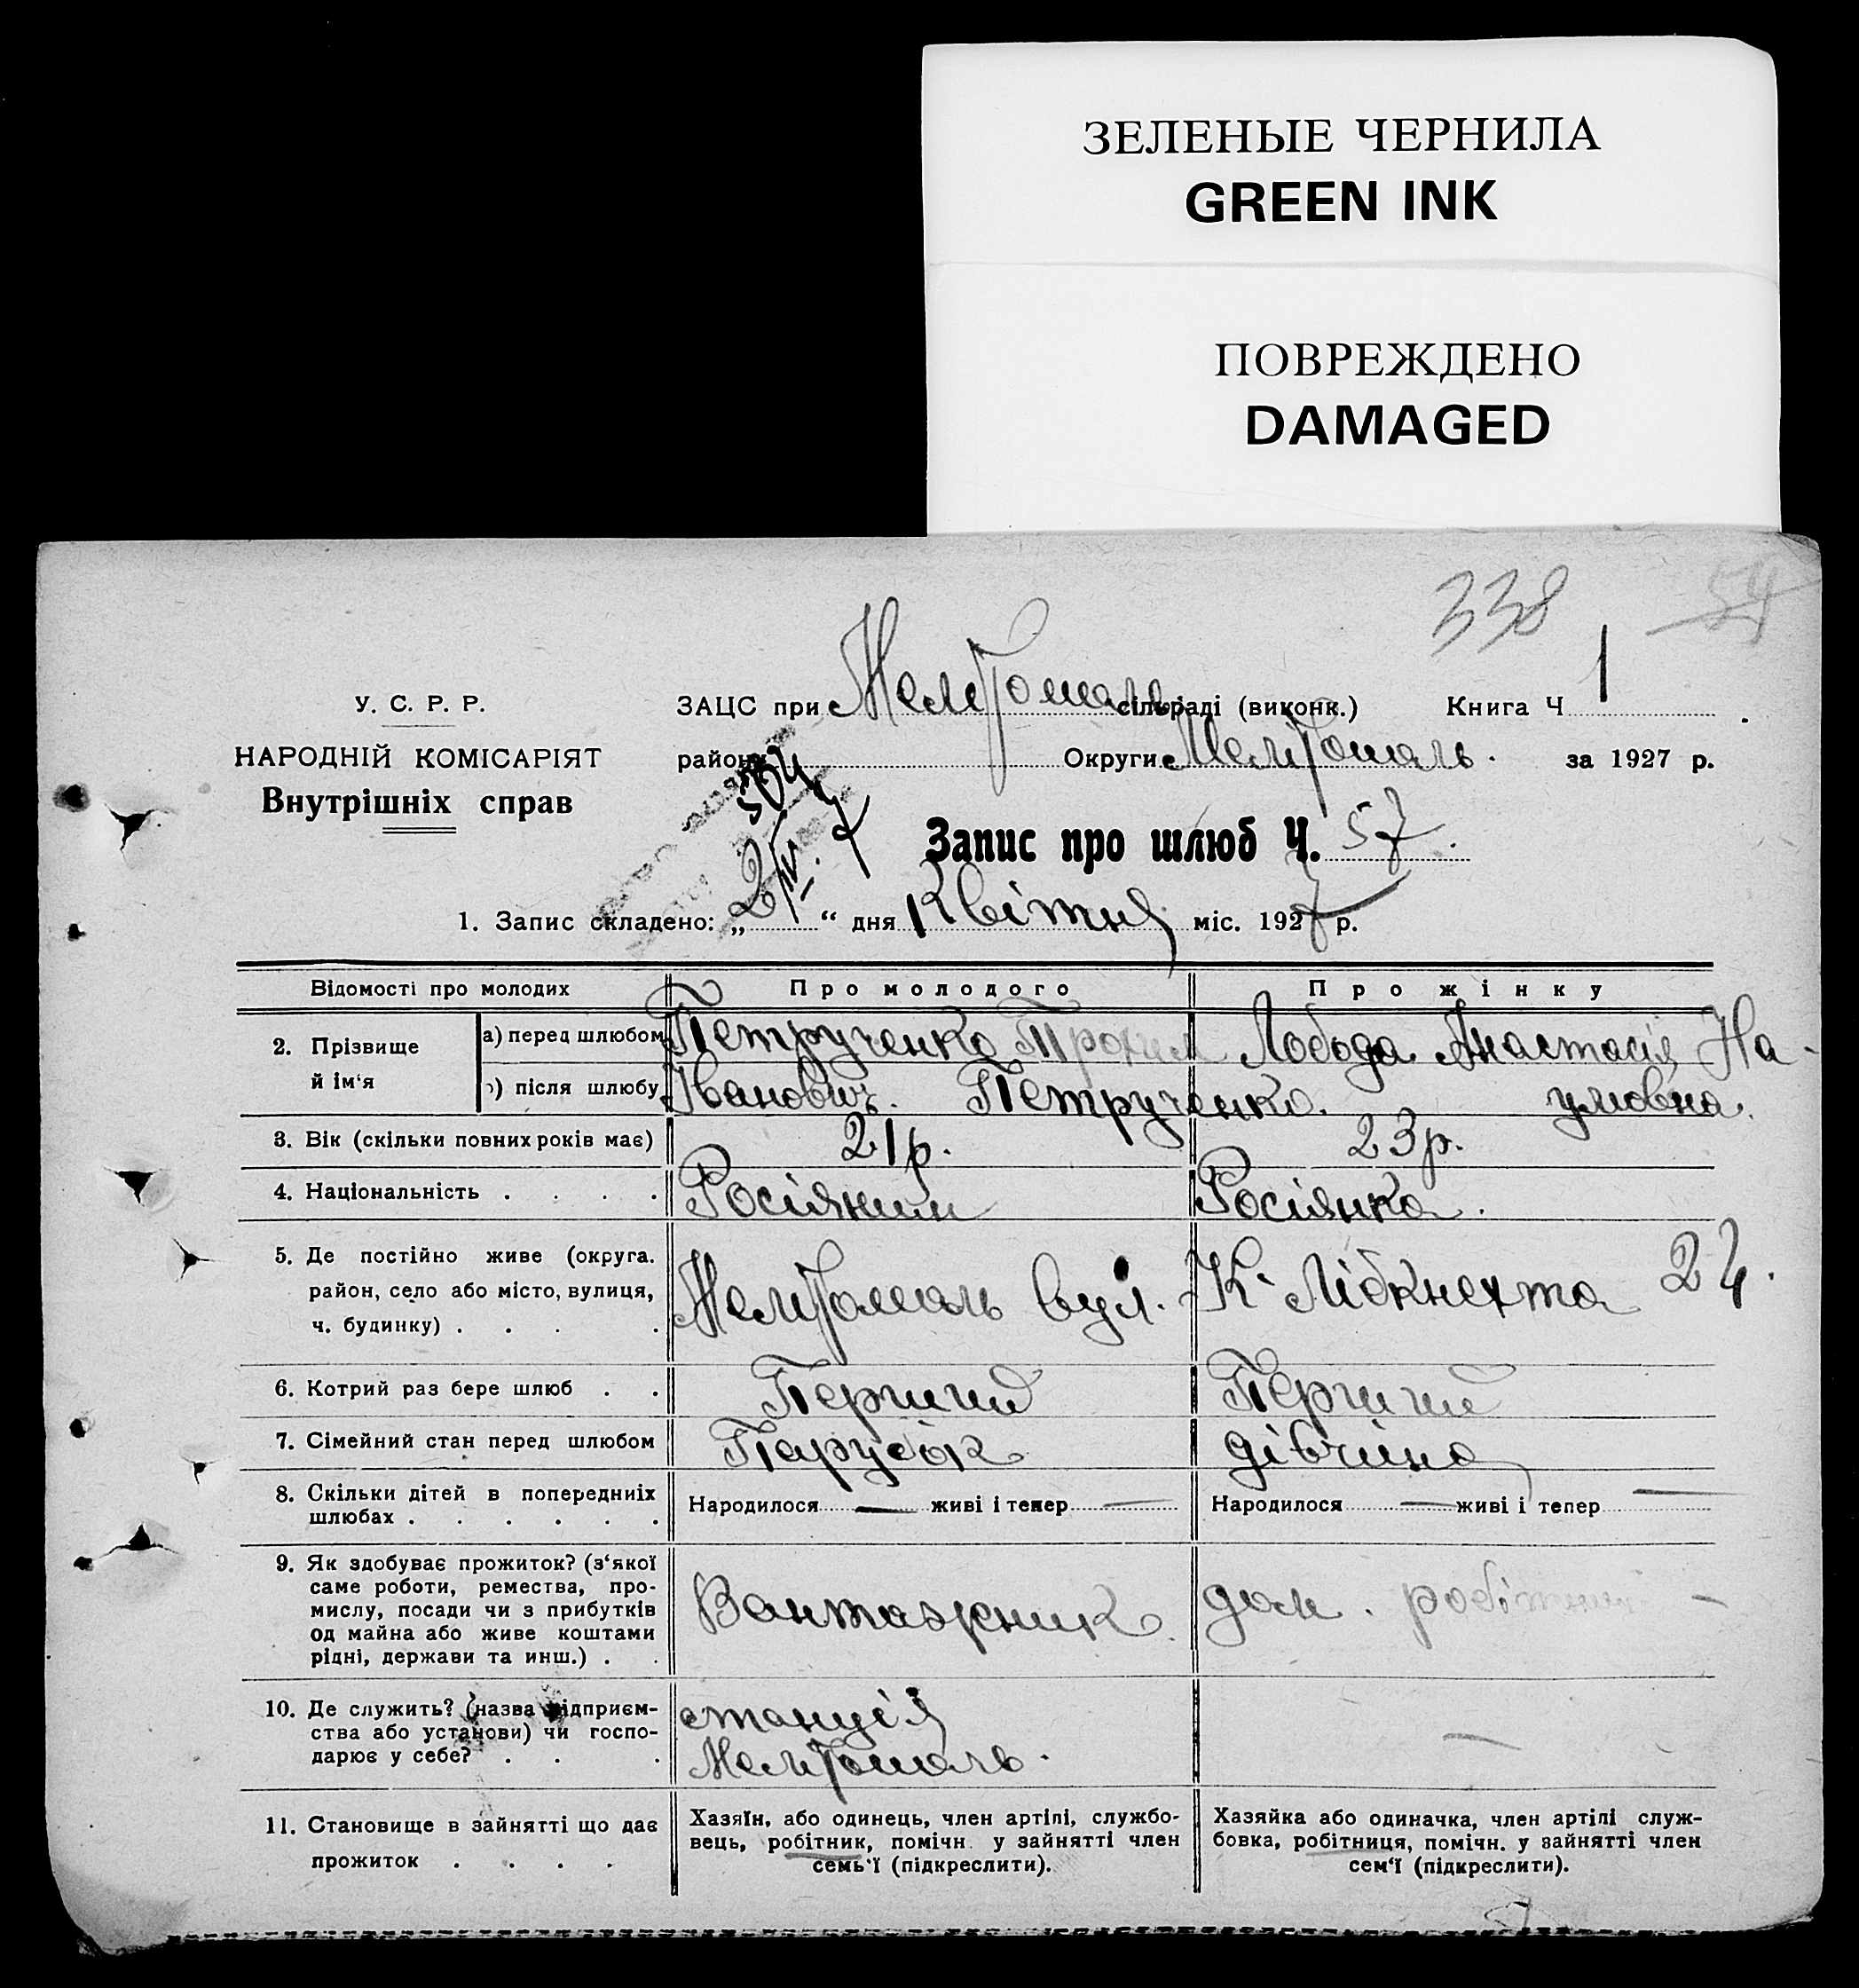 ЗЕЛЕНЫЕ ЧЕРНИЛА
GREEN INK
ПОВРЕЖДЕНО
DAMAGED
338 54
У. С. Р. Р.
НАРОДНІЙ КОМІСАРІЯТ
Внутрішніх справ
ЗАЦС при Мелітополь сільраді (виконк.) Книга Ч 1
району Округи Мелітополь. за 1927 р.
Запис про шлюб Ч. 57.
1. Запис складено: „ 2 “ дня Квітня міс. 1927 р.
Відомості про молодих Про молодого Про жінку
2. Прізвище й ім‘я
а) перед шлюбом Петрученко Трохим Лобода Анастасія На-
б) після шлюбу Іванович. Петрученко. умовна.
3. Вік (скільки повних років має) 21 р. 23 р.
4. Національність . . . . Росіянин Росіянка.
5. Де постійно живе (округа.
район, село або місто, вулиця,
ч. будинку) . . . . Мелітополь вул. К. Лібкнехта 24.
6. Котрий раз бере шлюб . . Перший Перший
7. Сімейний стан перед шлюбом Парубок дівчина
8. Скільки дітей в попередниіх
шлюбах . . . . . . Народилося — живі і тепер — Народилося — живі і тепер —
9. Як здобуває прожиток? (з‘якої
саме роботи, ремества, про-
мислу, посади чи з прибутків
од майна або живе коштами
рідні, держави та инш.) . .
Вантажник. дом. робітниця —
10. Де служить? (назва підприєм-
ства або установи) чи госпо-
дарює у себе? . . .
станція
Мелітополь. —
11. Становище в зайнятті що дає
прожиток . . . .
Хазяїн, або одинець, член артілі, службо-
вець, робітник, помічн. у зайнятті член
семь‘ї (підкреслити).
Хазяйка або одиначка, член артілі служ-
бовка, робітниця, помічн. у зайнятті член
сем‘ї (підкреслити).